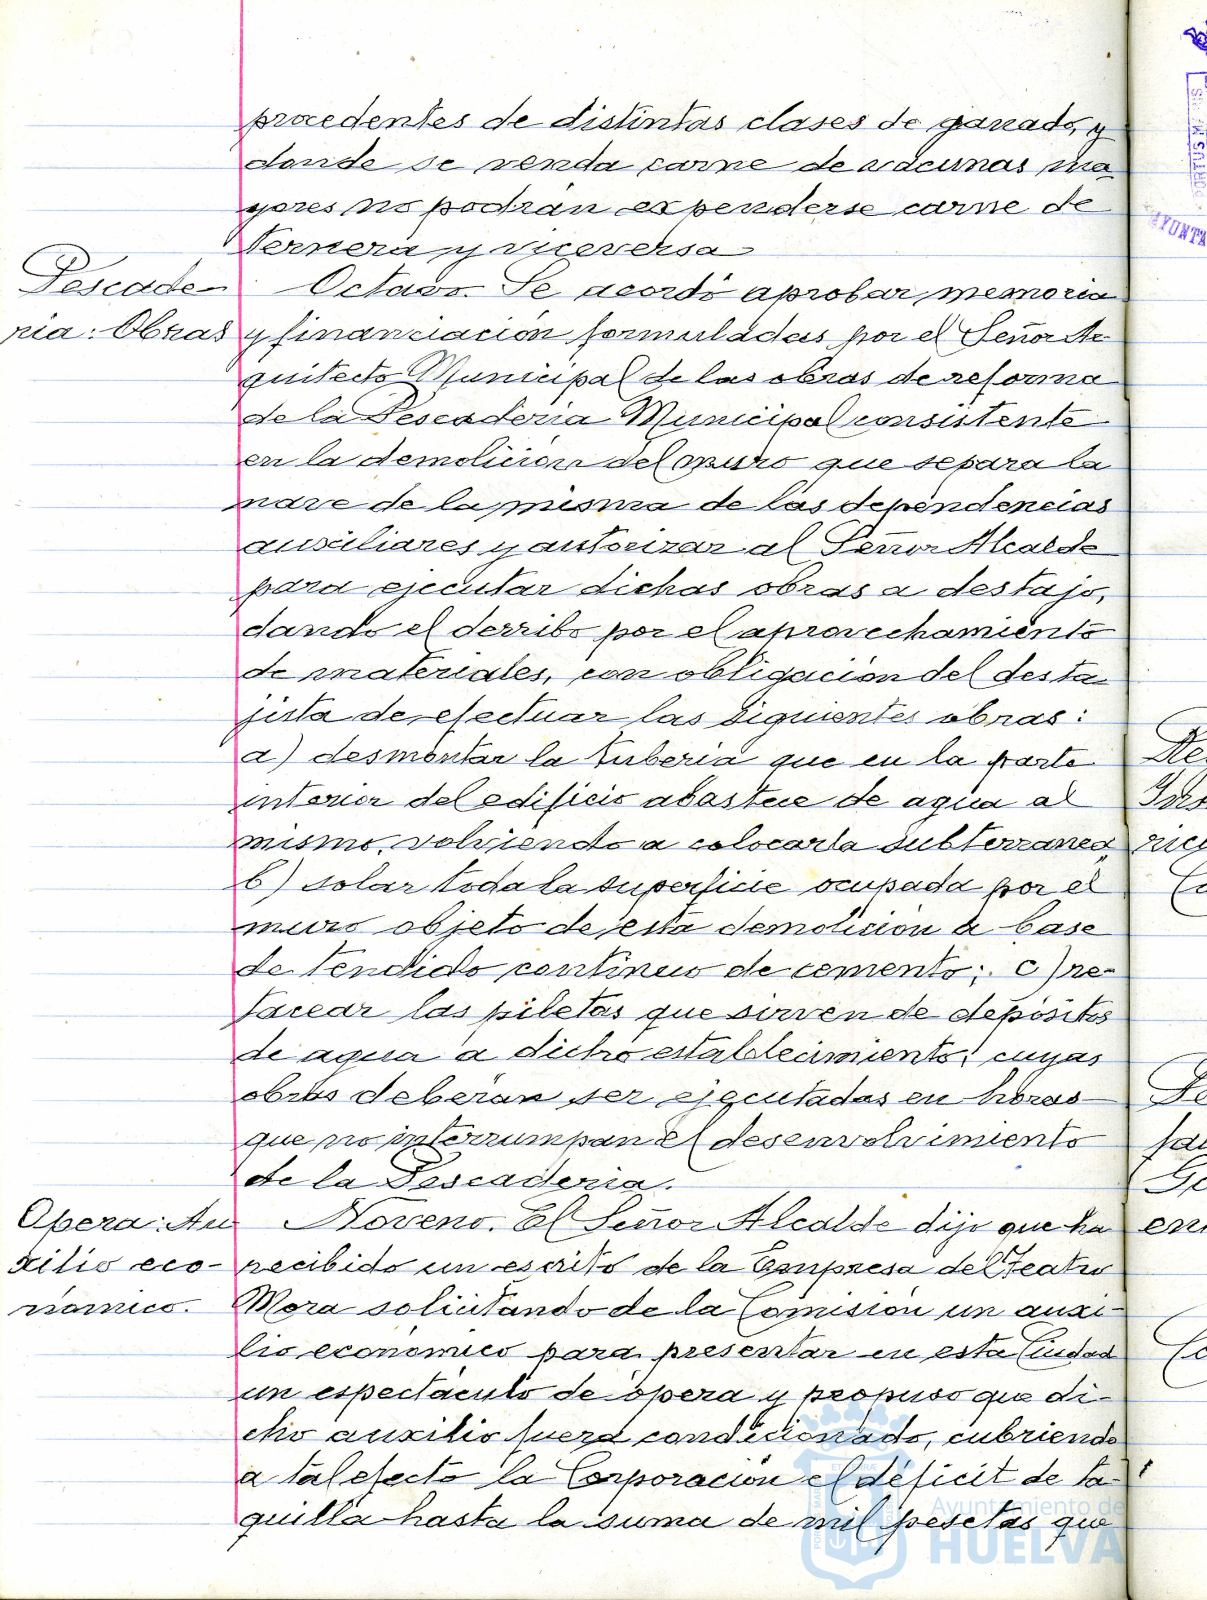 procedentes de distintas clases de ganado, y
donde se venda carne de vacunas ma
yores no podrán expenderse carne de
ternera y viceversa
Pescade-
ria: Obras
Octavo. Se acordó aprobar memoria
y financiación formuladas por el Señor Ar
quitecto Municipal de las obras de reforma
de la Pescaderia Municipal consistente
en la demolición del muro que separa la
nave de la misma de las dependencias
auxiliares y autorizar al Señor Alcalde
para ejecutar dichas obras a destajo,
dando el derribo por el aprovechamiento
de materiales, con obligación del desta
jista de efectuar las siguientes obras:
a) desmontar la tuberia que en la parte
interior del edificio abastece de agua al
mismo, volviendo a colocarla subterranea
b) solar toda la superficie ocupada por el
muro objeto de esta demolición a base
de tendido continuo de cemento; c) re-
tacear las piletas que sirven de depósitos
de agua a dicho establecimiento; cuyas
obras deberán ser ejecutadas en horas
que no interrumpan el desenvolvimiento
de la Pescaderia.
Opera: Au
xilio eco-
nómico.
Noveno. El Señor Alcalde dijo que ha
recibido un escrito de la Empresa del Teatro
Mora solicitando de la Comisión un auxi-
lio económico para presentar en esta Ciudad
un espectáculo de ópera y propuso que di-
cho auxilio fuera condicionado, cubriendo
a tal efecto la Corporación el déficit de ta-
quilla hasta la suma de mil pesetas que
Ayuntamiento de
HUELVA